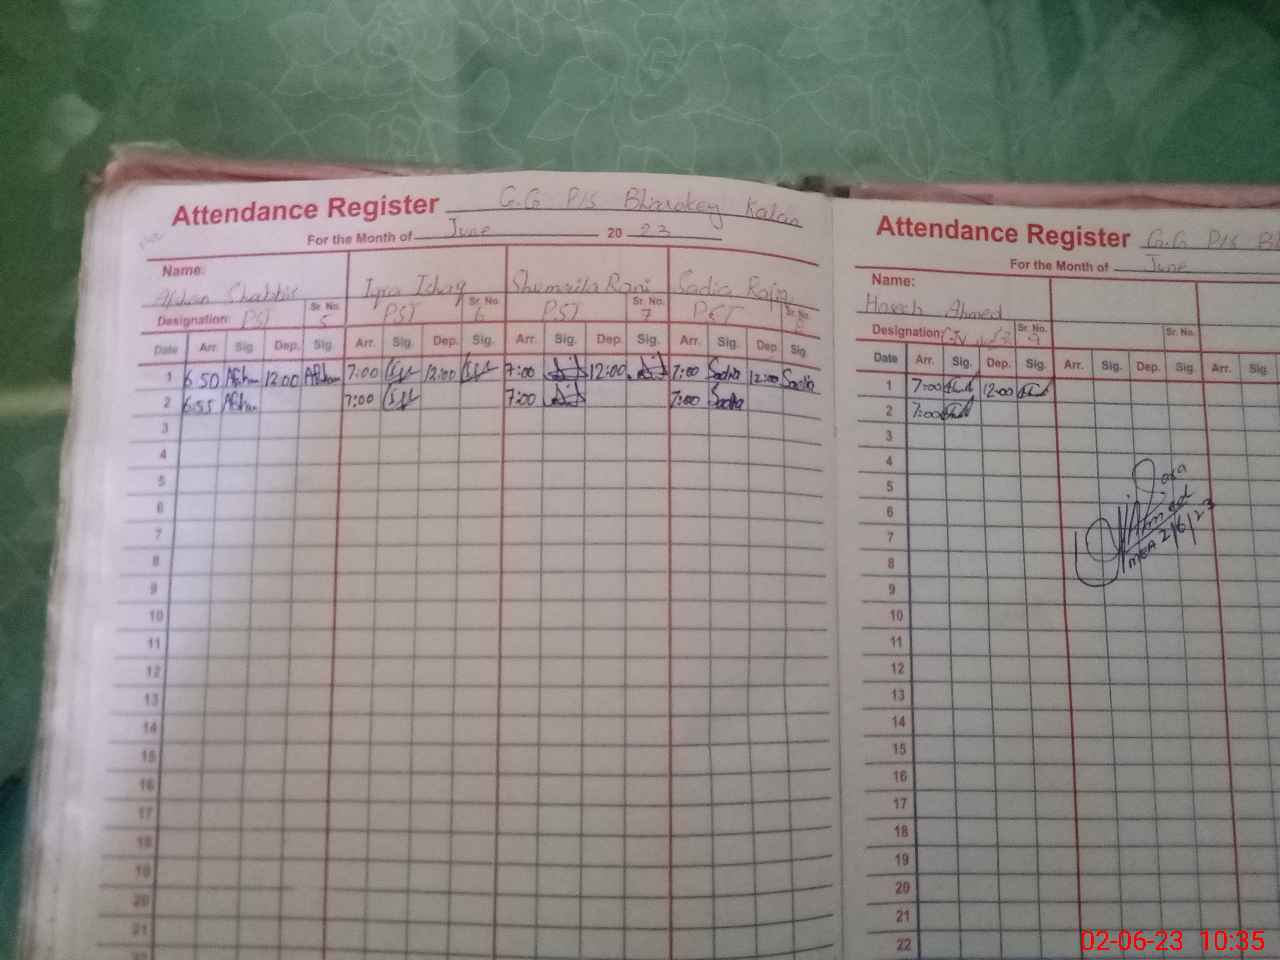 Attendance Register G.G P/S Bhirokey Kalan
For the Month of June 20 23
Name:
Afshan Shabbir Iqra Ishaq Shumaila Rani Sadia Raja
Designation: PST Sr. No. 5 PST Sr. No. 6 PST Sr. No. 7 PET Sr. No. 8
Date Arr. Sig. Dep. Sig. Arr. Sig. Dep. Sig. Arr. Sig. Dep. Sig. Arr. Sig. Dep. Sig.
1 6:50 Afshan 12:00 Afshan 7:00 12:00 7:00 12:00 7:00 Sadia 12:00 Sadia
2 6:55 Afshan 7:00 7:00 7:00 Sadia
3
4
5
6
7
8
9
10
11
12
13
14
15
16
17
18
19
20
21
Attendance Register G.G P/S
For the Month of June
Name:
Haseeb Ahmed
Designation: Sr. No. 9 Sr. No.
Date Arr. Sig. Dep. Sig. Arr. Sig. Dep. Sig. Arr. Sig.
1 7:00 12:00
2 7:00
3
4
5
6
7
8
9
10
11
12
13
14
15
16
17
18
19
20
21
22
Ahmed
MEA 2/6/23
02-06-23 10:35